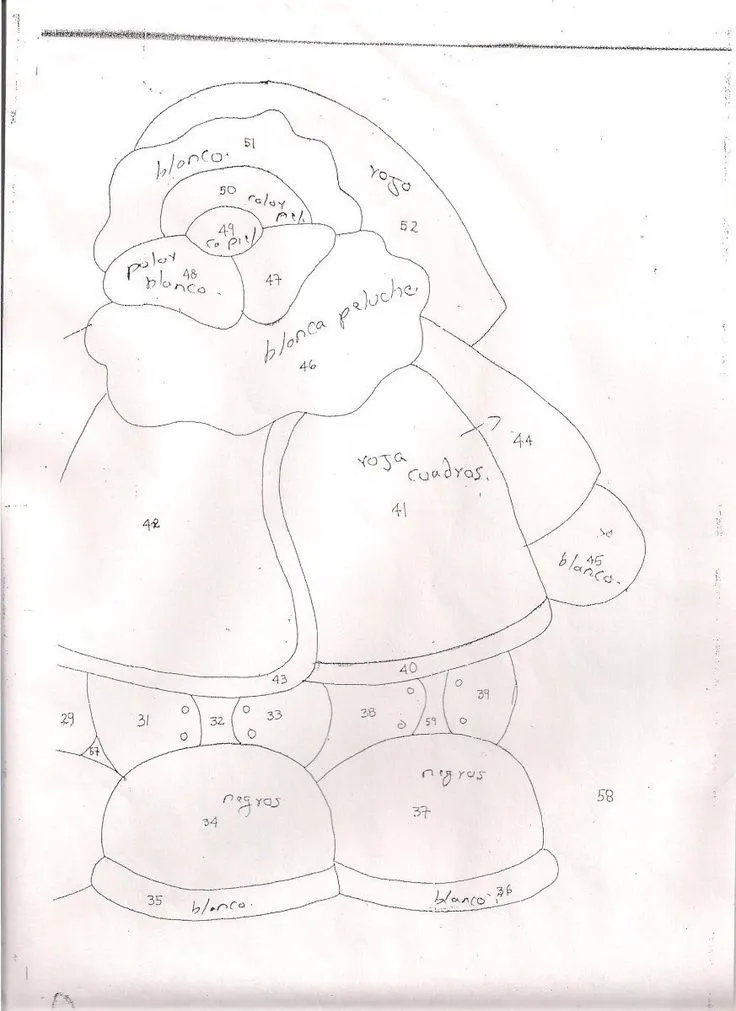 51
blanco.
rojo
50
color
49
piel
52
polar
48
blanco.
47
blanca peluche.
46
44
roja
cuadros.
42
41
45
blanco.
40
43
29
31
32
33
38
59
39
57
negros
negros
58
34
37
35
blanco.
36
blanco